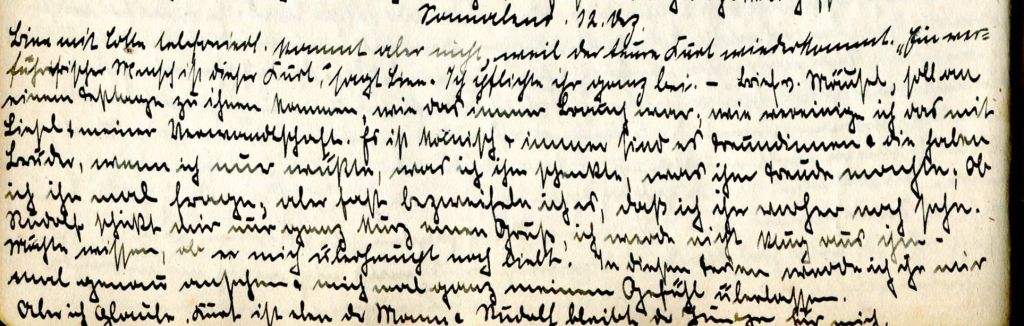 Sonnabend. 12. Dez.
Bien mit Lotte telefoniert. Kommt aber nicht, weil der teure Kurt wiederkommt. „Ein ver=
führerischer Mensch ist dieser Kurt", sagt Bien. Ich pflichte ihr ganz bei. – Brief v. Mäusel, soll an
einem Festtage zu ihnen kommen, wie das immer Brauch war, wie vereinige ich das mit
Liesel + meiner Verwandtschaft. Es ist komisch + immer sind es Freundinnen + die haben
Brüder, wenn ich nur wüßte, was ich ihm schenkte, was ihm Freude machte; Ob
ich ihn mal frage, aber fast bezweifeln ich es, daß ich ihn vorher noch sehe.
Rudolf schickt mir nur ganz kurz einen Gruß, ich werde nicht klug aus ihm.
Möchte wissen, ob er mich überhaupt noch liebt. In diesen Ferien werde ich ihn mir
mal genau ansehen + mich mal ganz meinem Gefühl überlassen.
Aber ich glaube, Kurt ist eben der Mann + Rudolf bleibt der Junge für mich.